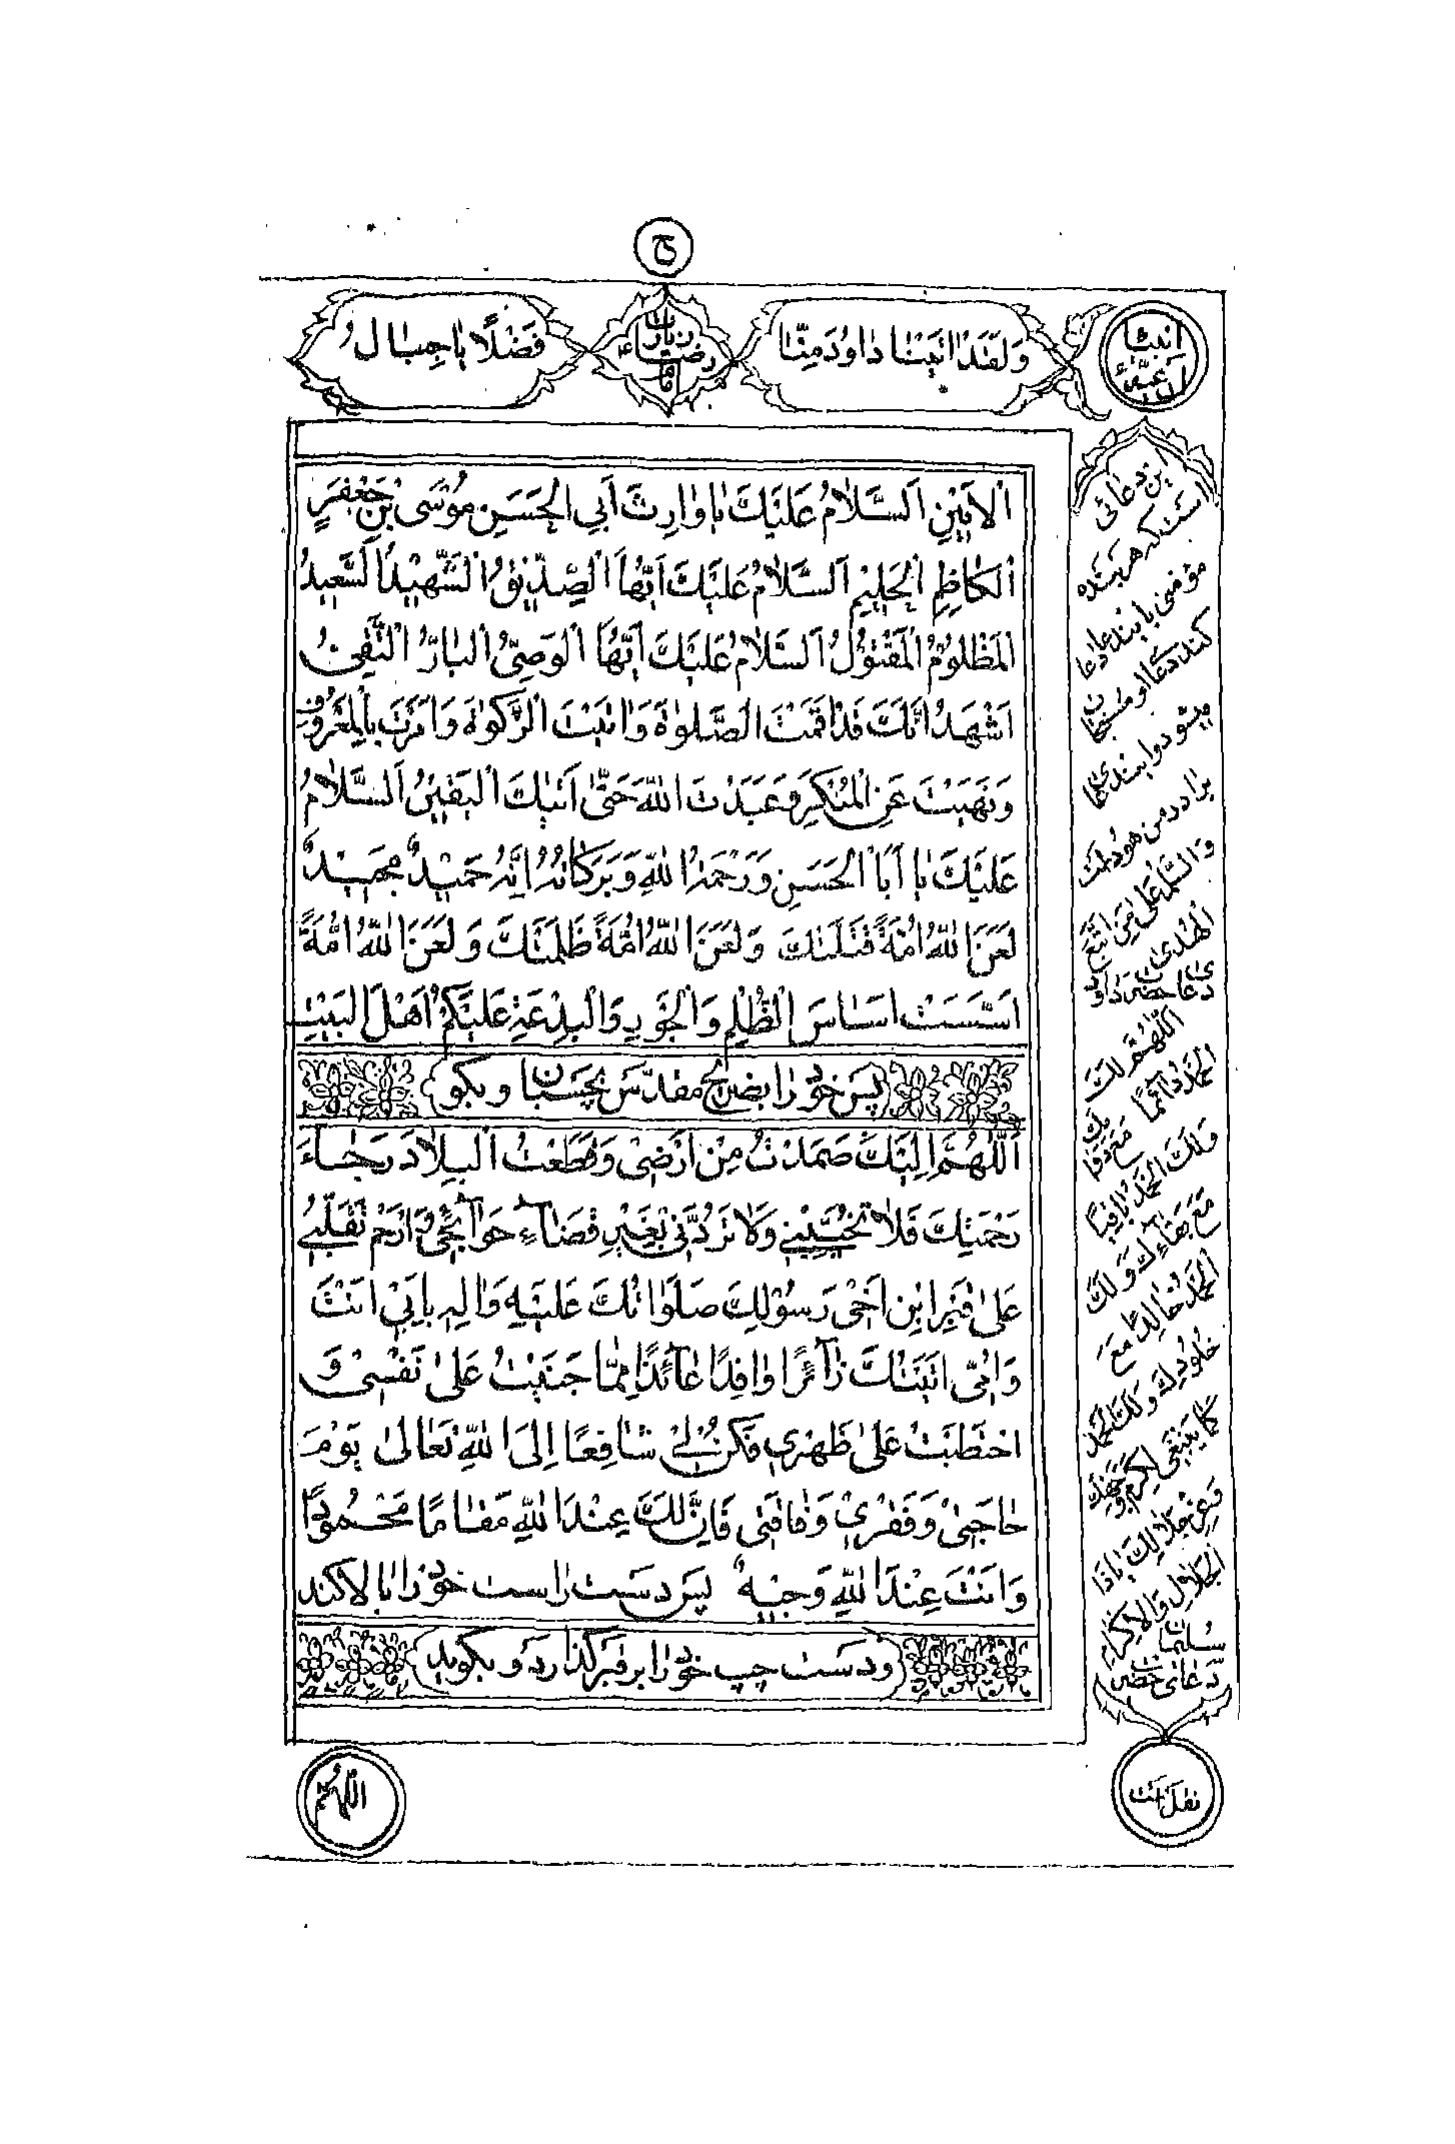 ح
انبيا
وَلَقَدْ اٰتَيْنَا دٰاوُدَ مِنَّا
زيارت
امام رضا ع
فَضْلًا يٰا جِبٰالُ
اَلْاَمِيْنِ اَلسَّلٰامُ عَلَيْكَ يٰا وٰارِثَ اَبِي الْحَسَنِ مُوْسَى بْنِ جَعْفَرٍ
اَلْكٰاظِمِ الْحَلِيْمِ اَلسَّلٰامُ عَلَيْكَ اَيُّهَا الصِّدِّيْقُ الشَّهِيْدُ السَّعِيْدُ
الْمَظْلُوْمُ الْمَقْتُوْلُ اَلسَّلٰامُ عَلَيْكَ اَيُّهَا الْوَصِيُّ الْبٰارُّ التَّقِيُّ
اَشْهَدُ اَنَّكَ قَدْ اَقَمْتَ الصَّلٰوةَ وَاٰتَيْتَ الزَّكٰوةَ وَاَمَرْتَ بِالْمَعْرُوْفِ
وَنَهَيْتَ عَنِ الْمُنْكَرِ وَعَبَدْتَ اللّٰهَ حَتّٰى اَتٰيكَ الْيَقِيْنُ اَلسَّلٰامُ
عَلَيْكَ يٰا اَبَا الْحَسَنِ وَرَحْمَةُ اللّٰهِ وَبَرَكٰاتُهُ اِنَّهُ حَمِيْدٌ مَجِيْدٌ
لَعَنَ اللّٰهُ اُمَّةً قَتَلَتْكَ وَلَعَنَ اللّٰهُ اُمَّةً ظَلَمَتْكَ وَلَعَنَ اللّٰهُ اُمَّةً
اَسَّسَتْ اَسٰاسَ الظُّلْمِ وَالْجَوْرِ وَالْبِدْعَةِ عَلَيْكُمْ اَهْلَ الْبَيْتِ
پس خود را بضريح مقدّس بچسبان وبكو
اَللّٰهُمَّ اِلَيْكَ صَمَدْتُ مِنْ اَرْضِيْ وَقَطَعْتُ الْبِلٰادَ رَجٰاءَ
رَحْمَتِكَ فَلٰا تُخَيِّبْنِيْ وَلٰا تَرُدَّنِيْ بِغَيْرِ قَضٰاءِ حَوٰائِجِيْ وَارْحَمْ تَقَلُّبِيْ
عَلىٰ قَبْرِ ابْنِ اَخِيْ رَسُوْلِكَ صَلَوٰاتُكَ عَلَيْهِ وَاٰلِهِ بِاَبِيْ اَنْتَ
وَاُمِّيْ اَتَيْتُكَ زٰائِرًا وٰافِدًا عٰائِذًا مِمّٰا جَنَيْتُ عَلىٰ نَفْسِيْ وَ
احْتَطَبْتُ عَلىٰ ظَهْرِيْ فَكُنْ لِيْ شٰافِعًا اِلَى اللّٰهِ تَعٰالىٰ يَوْمَ
حٰاجَتِيْ وَفَقْرِيْ وَفٰاقَتِيْ فَاِنَّ لَكَ عِنْدَ اللّٰهِ مَقٰامًا مَحْمُوْدًا
وَاَنْتَ عِنْدَ اللّٰهِ وَجِيْهٌ پس دست راست خود را بالا كند
ودست چپ خود را بر قبر كذارد وبكويد
اين دعائى
است كه هر بنده
مؤمنى با بندعا دعا
كند
برادر من هود است
وَالسَّلٰامُ عَلىٰ مَنِ اتَّبَعَ
الْهُدىٰ
دعاى حضرت داود
اَللّٰهُمَّ لَكَ
الْحَمْدُ دٰائِمًا مَعَ دَوٰامِكَ
وَلَكَ الْحَمْدُ بٰاقِيًا
مَعَ بَقٰائِكَ وَلَكَ
الْحَمْدُ خٰالِدًا مَعَ
خُلُوْدِكَ وَلَكَ الْحَمْدُ
كَمٰا يَنْبَغِيْ لِكَرَمِ وَجْهِكَ
وَعِزِّ جَلٰالِكَ يٰا ذَا
الْجَلٰالِ وَالْاِكْرٰامِ
سليمان
دعائى حضرت
نقل است
اللّٰهُمَّ